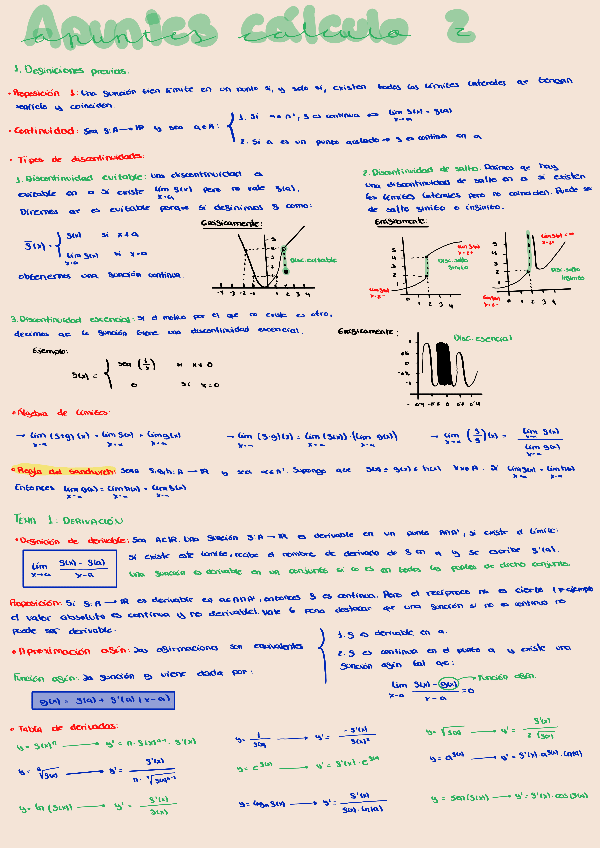 apuntes cálculo 2
1. Definiciones previas.
• Proposición 1: Una función tien límite en un punto si, y solo si, existen todos los límites laterales que tengan
sentido y coinciden
• Continuidad: Sea f: A → ℝ y sea a∈A:
1. Si a∈A', f es continua ⇔ lim f(x) = f(a)
x→a
2. Si a es un punto aislado → f es continua en a
• Tipos de discontinuidades:
1. Discontinuidad evitable: una discontinuidad es
evitable en a si existe lim f(x) pero no vale f(a).
x→a
Diremos que es evitable porque si definimos f como:
f(x) = f(x) si x≠a
lim f(x) si x=a
x→a
obtenemos una función continua.
Gráficamente:
Disc. evitable
2. Discontinuidad de salto. Decimos que hay
una discontinuidad de salto en a si existen
los límites laterales pero no coinciden. Puede ser
de salto finito o infinito.
Gráficamente:
Disc. salto
finito
Disc. salto
infinito
3. Discontinuidad esencial: Si el motivo por el que no existe es otro,
decimos que la función tiene una discontinuidad esencial.
Ejemplo:
f(x) = sen (1/x) si x≠0
0 si x=0
Gráficamente:
Disc. esencial
• Álgebra de límites:
→ lim (f+g)(x) = lim f(x) + lim g(x)
x→a x→a x→a
→ lim (f·g)(x) = lim (f(x)) · (lim g(x))
x→a x→a x→a
→ lim (f/g)(x) = lim f(x) / lim g(x)
x→a x→a x→a
• Regla del sandwich: Sean f,g,h: A → ℝ y sea a∈A'. Supongo que f(x) ≤ g(x) ≤ h(x) ∀x∈A. Si lim f(x) = lim h(x)
x→a x→a
Entonces lim g(x) = lim h(x) = lim f(x)
x→a x→a x→a
TEMA 1: DERIVACIÓN
• Definición de derivable: Sea A⊂ℝ. Una función f: A → ℝ es derivable en un punto A∩A', si existe el límite:
lim f(x) - f(a) / x-a
x→a
Si existe este límite, recibe el nombre de derivada de f en a y se escribe f'(a).
Una función es derivable en un conjunto si lo es en todos los puntos de dicho conjunto.
Proposición: Si f: A → ℝ es derivable en a∈A∩A', entonces f es continua. Pero el recíproco no es cierto (por ejemplo
el valor absoluto es continua y no derivable). Vale la pena destacar que una función si no es continua no
puede ser derivable.
• Aproximación afín: Las afirmaciones son equivalentes
1. f es derivable en a.
2. f es continua en el punto a y existe una
función afín tal que:
lim f(x) - g(x) / x-a = 0
x→a
Función afín.
Función afín: La función g viene dada por:
g(x) = f(a) + f'(a)(x-a)
• Tabla de derivadas:
y = f(x)ⁿ → y' = n·f(x)ⁿ⁻¹·f'(x)
y = 1/f(x) → y' = -f'(x)/f(x)²
y = √f(x) → y' = f'(x)/2√f(x)
y = ⁿ√f(x) → y' = f'(x)/n·ⁿ√f(x)ⁿ⁻¹
y = e^f(x) → y' = f'(x)·e^f(x)
y = a^f(x) → y' = f'(x)·a^f(x)·ln(a)
y = ln (f(x)) → y' = f'(x)/f(x)
y = logₐ f(x) → y' = f'(x)/f(x)·ln(a)
y = sen(f(x)) → y' = f'(x)·cos(f(x))